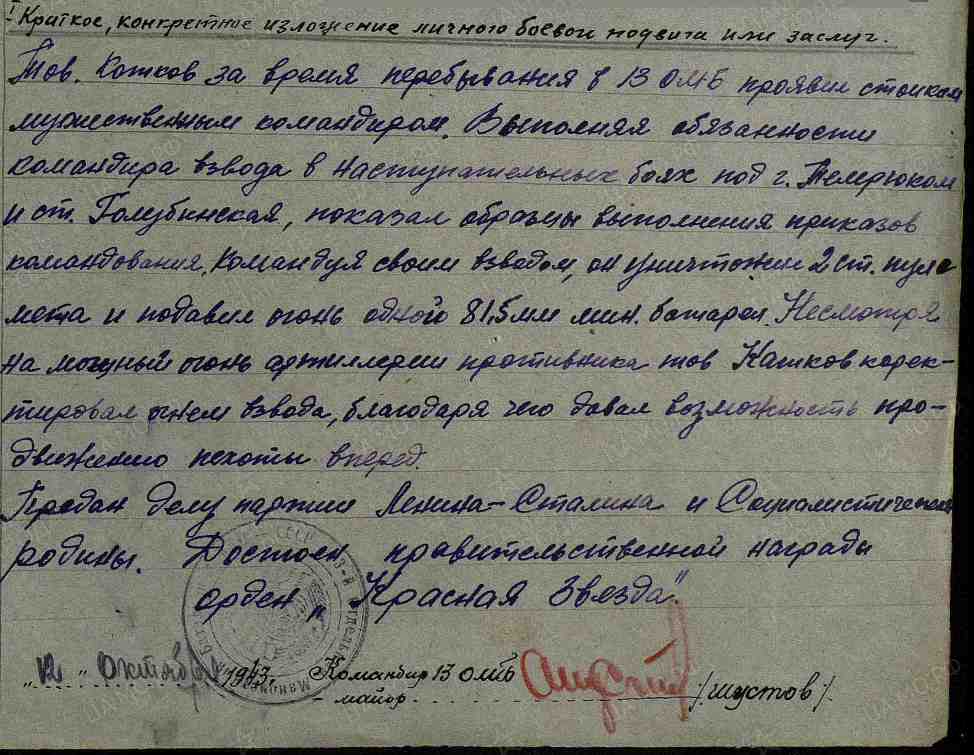 I Краткое, конкретное изложение личного боевого подвига или заслуг.
Тов. Котков за время перебывания в 13 ОМБ проявил стойким
мужественным командиром. Выполняя обязанности
командира взвода в наступательных боях под г. Темрюком
и ст. Голубинская, показал образцы выполнения приказов
командования. Командуя своим взводом, он уничтожил 2 ст. пуле
мета и подавил огонь одной 81,5мм мин. батареи. Несмотря
на мощный огонь артиллерии противника тов Катков корек-
тировал огнем взвода, благодаря чего давал возможность про-
движению пехоты вперед.
Предан делу партии Ленина-Сталина и Социалистической
родины. Достоен правительственной награды
орден "Красная Звезда".
"12" Октября 1943г. Командир 13 ОМБ
майор /Шустов/.